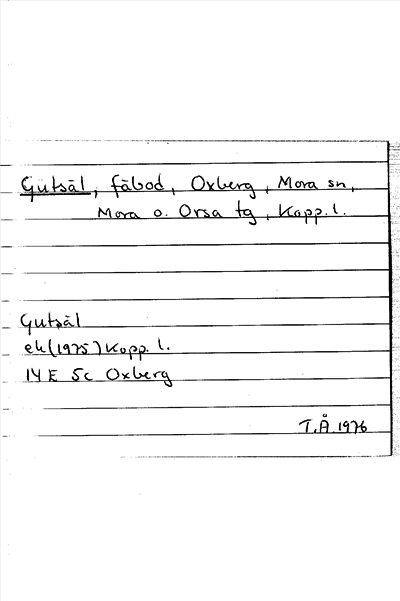 Gutsäl, fäbod, Oxberg, Mora sn,
Mora o. Orsa tg, Kopp. l.
Gutsäl
ek (1975) Kopp. l.
14 E 5c Oxberg
T.Å. 1976